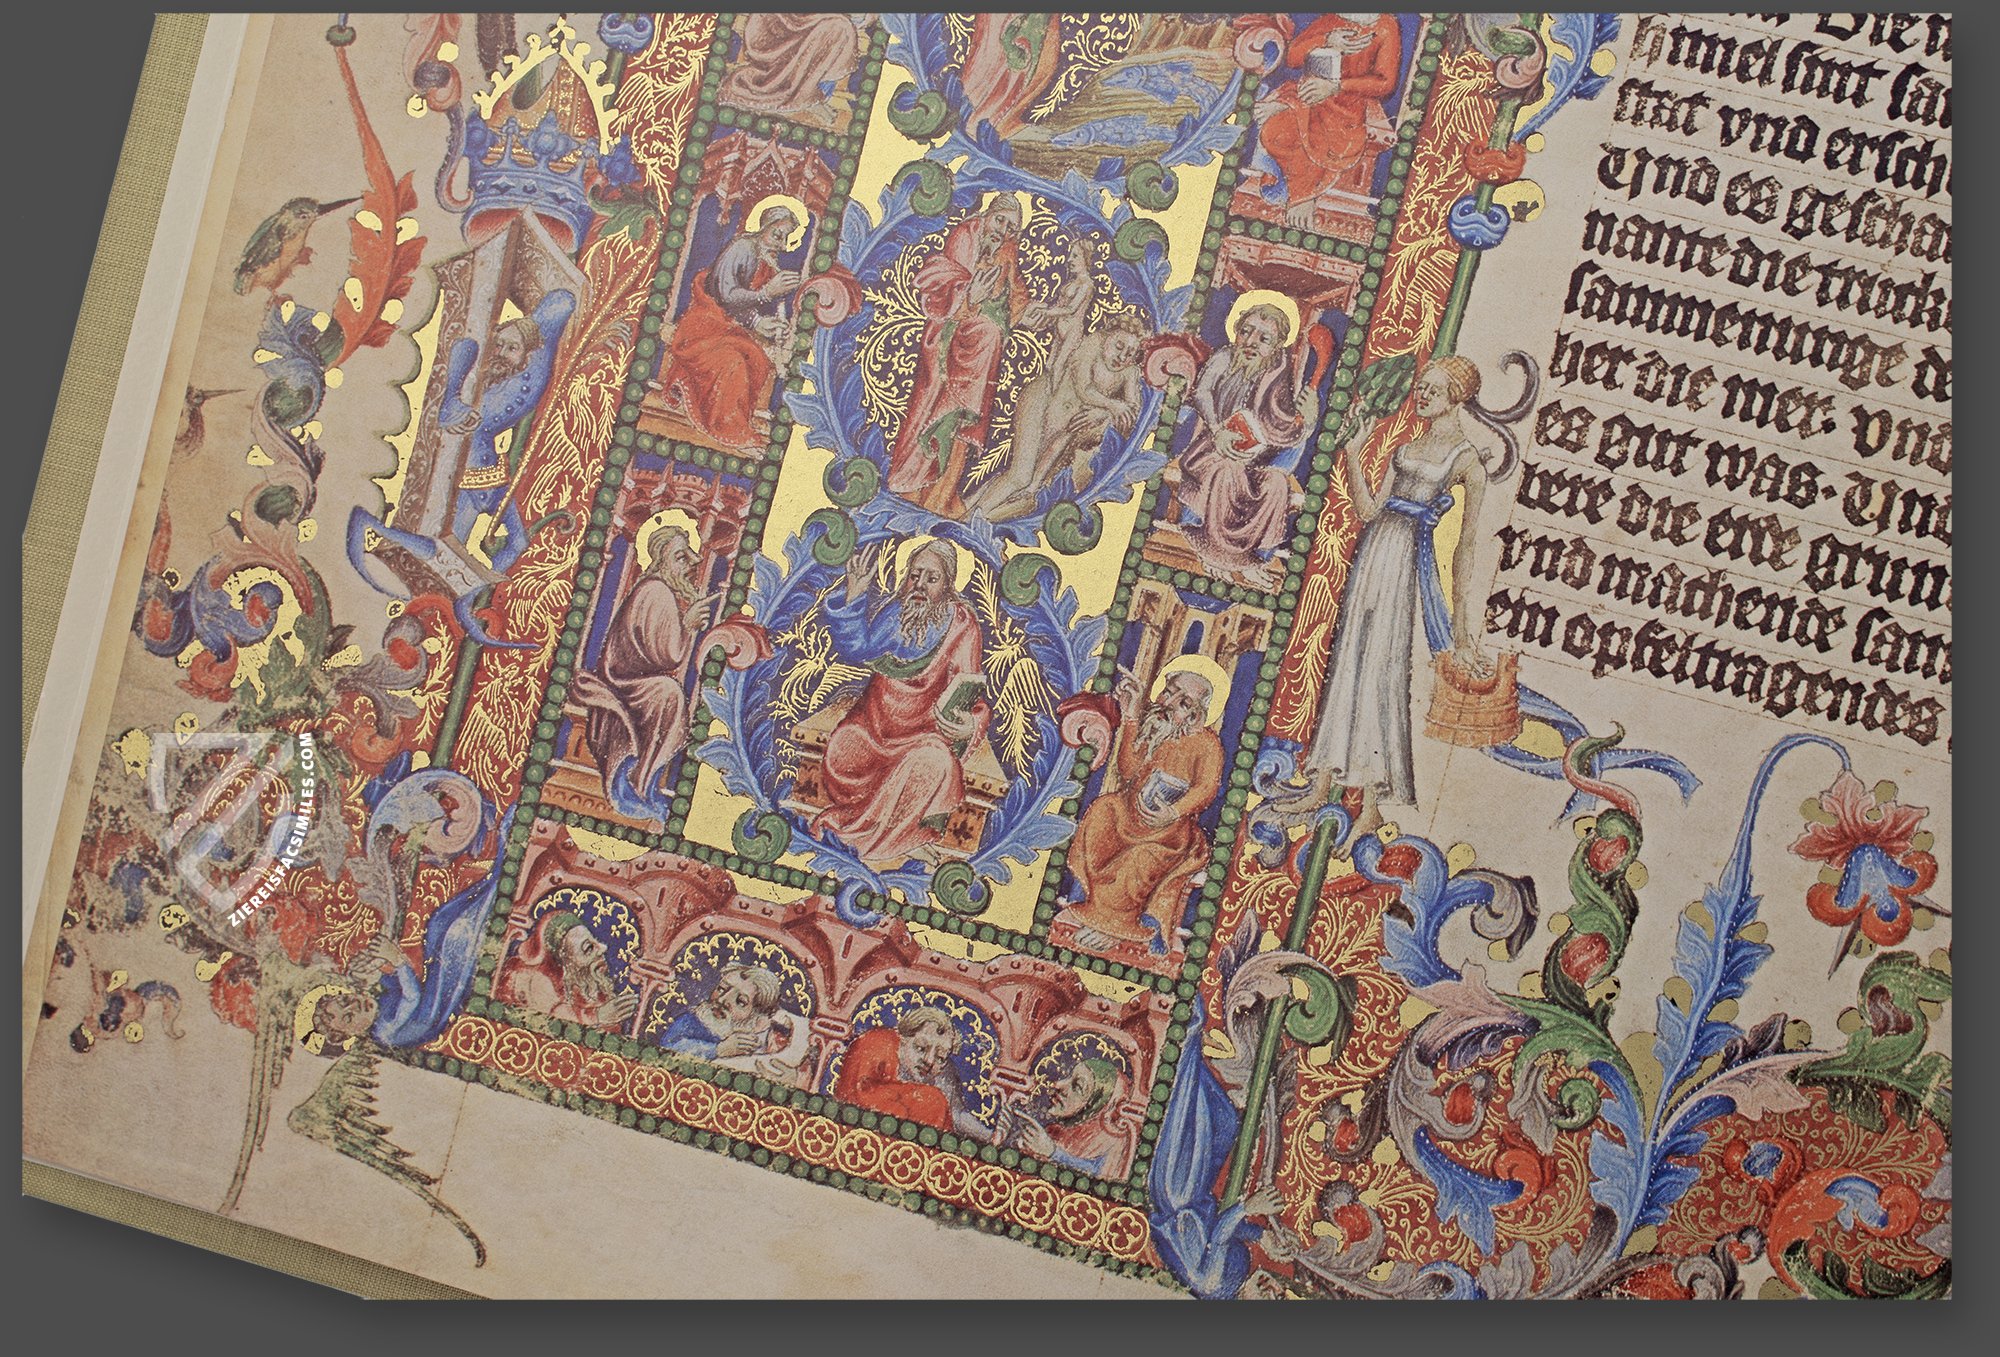 himel sint sa
stat vnd ersch
Vnd es gescha
nante die truck
sammenunge de
her die mer. vnd
es gut was. Vnd
bere die erde grun
vnd machende sam
ein opfeltragendes
ZIEREISFACSIMILES.COM